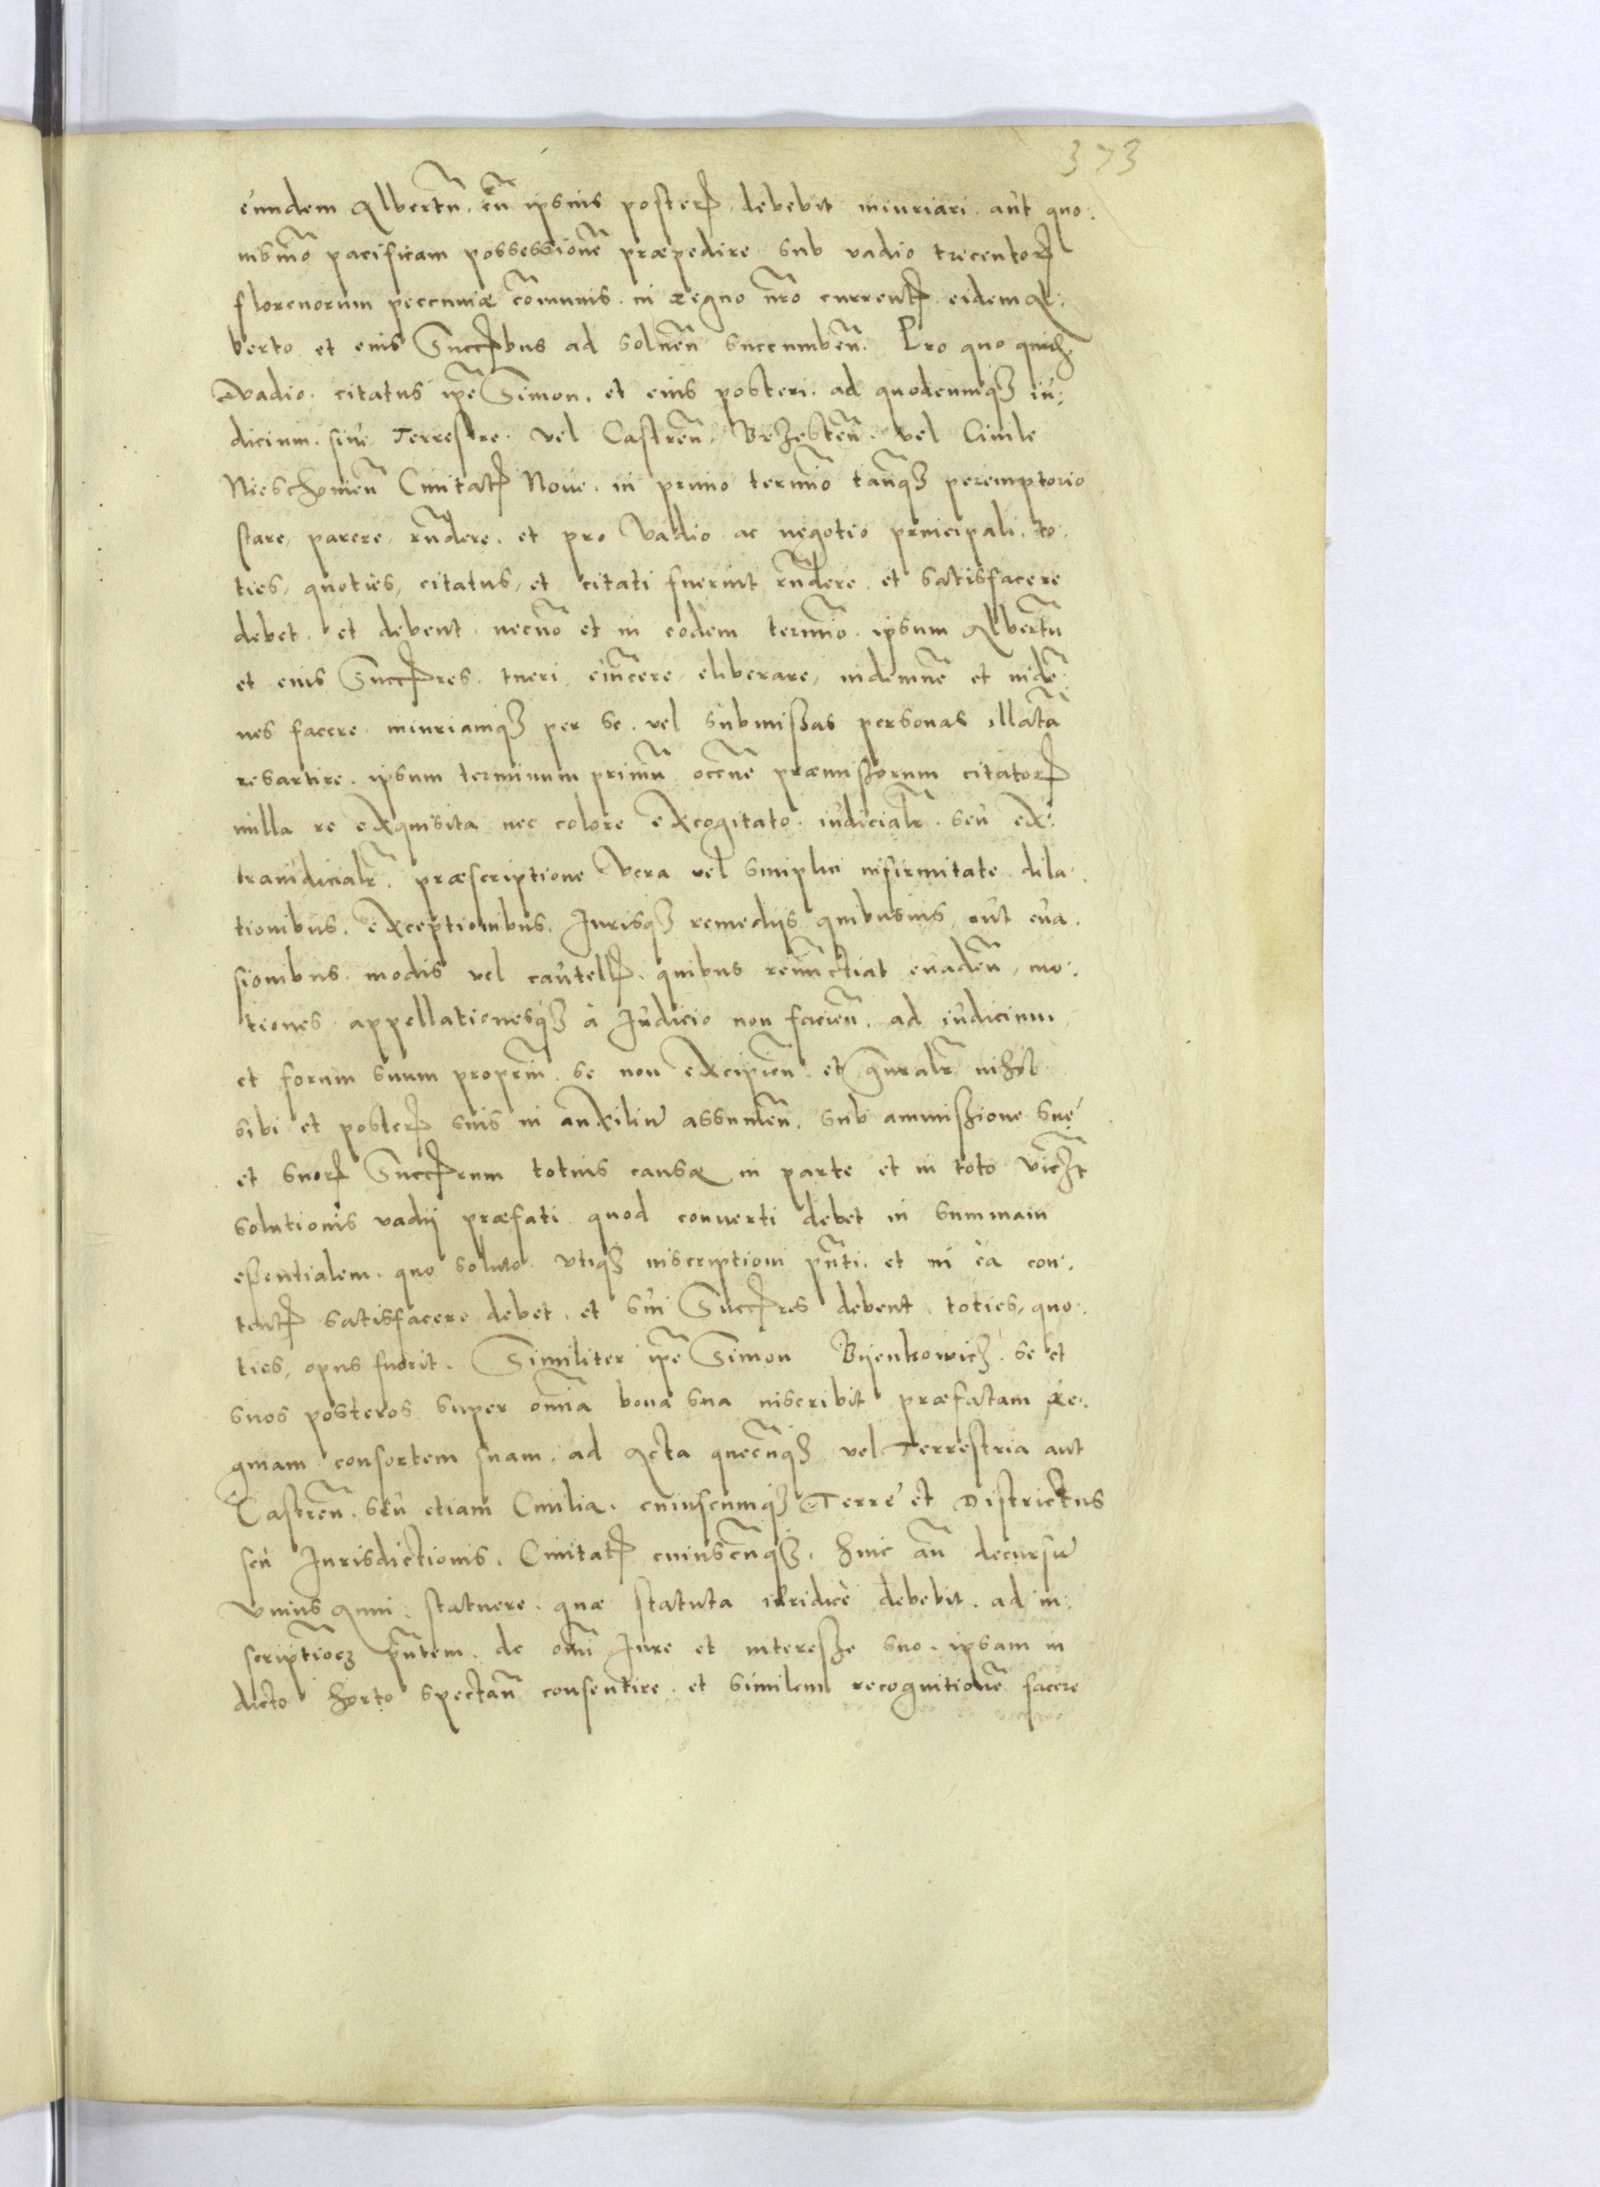 373
eundem Albertū, cū ipsius posterꝭ debebit iniuriari aut quo-
uismō pacificam possessionē præpedire sub vadio trecentorꝭ
florenorum pecuniæ cōmunis in regno nr̄o currentꝭ eidem Al-
berto et eius Succꝭbus ad soluen̄ succumben̄. Pro quo quidē
vadio citatus ip̄e Simon, et eius posteri, ad quodcumqȝ iu-
dicium, siue Terrestre, vel Castren̄, Brzesten̄, vel Ciuile
Nieschouien̄ Ciuitatꝭ Noue, in primo termīo tanq̄ȝ peremptorio
stare, parere, rn̄dere, et pro vadio ac negotio principali, to-
ties, quoties, citatus, et citati fuerint rn̄dere et satisfacere
debet, et debent, necnō et in eodem termīo ipsum Albertū
et eius Succꝭres tueri, euīcere, eliberare, indemnē et indē-
nes facere iniuriamqȝ per se vel submissas personas illatā
resartire, ipsum terminum primū occ̄ne præmissorum citatorꝭ
nulla re exquisita nec colore excogitato, iudicialr̄ seu ex-
traiudicialr̄, præscriptione vera vel simplici infirmitate, dila-
tionibus, exceptionibus, Jurisqȝ remedijs quibusuis, aut eua-
sionibus, modis vel cautellꝭ, quibus renūctiat euaden̄, mo-
tiones appellationesqȝ à Judicio non facien̄, ad iudicium
et forum suum propriū se non excipien̄ et gn̄ralr̄ nihil
sibi et posterꝭ suis in auxiliū assumen̄, sub ammissione suę
et suorꝭ Succꝭrum totius causæ in parte et in toto
solutionis vadij præfati quod conuerti debet in summam
essentialem, quo soluto vtiqȝ inscriptioni pn̄ti, et in ea con-
tentꝭ satisfacere debet, et sui Succꝭres debent, toties, quo-
ties, opus fuerit. Similiter ip̄e Simon Byenkowicȝ, se et
suos posteros super om̄ia bona sua inscribit præfatam Re-
ginam consortem suam, ad Acta quecūqȝ vel Terrestria aut
Castren̄, seu etiam Ciuilia, cuiuscumqȝ Terre et Districtus
seu Jurisdictionis, Ciuitatꝭ cuiuscūqȝ, hinc an̄ decursū
vnius Anni, statuere, quæ statuta iuridicè debebit, ad in-
scriptioēȝ pn̄tem, de om̄i Jure et interesse suo, ipsam in
dicto horto spectan̄ consentire, et similem recognitionē facere